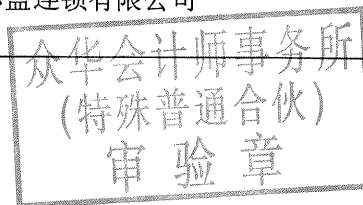 连锁有限公司
众华会计师事务所
(特殊普通合伙)
审验章